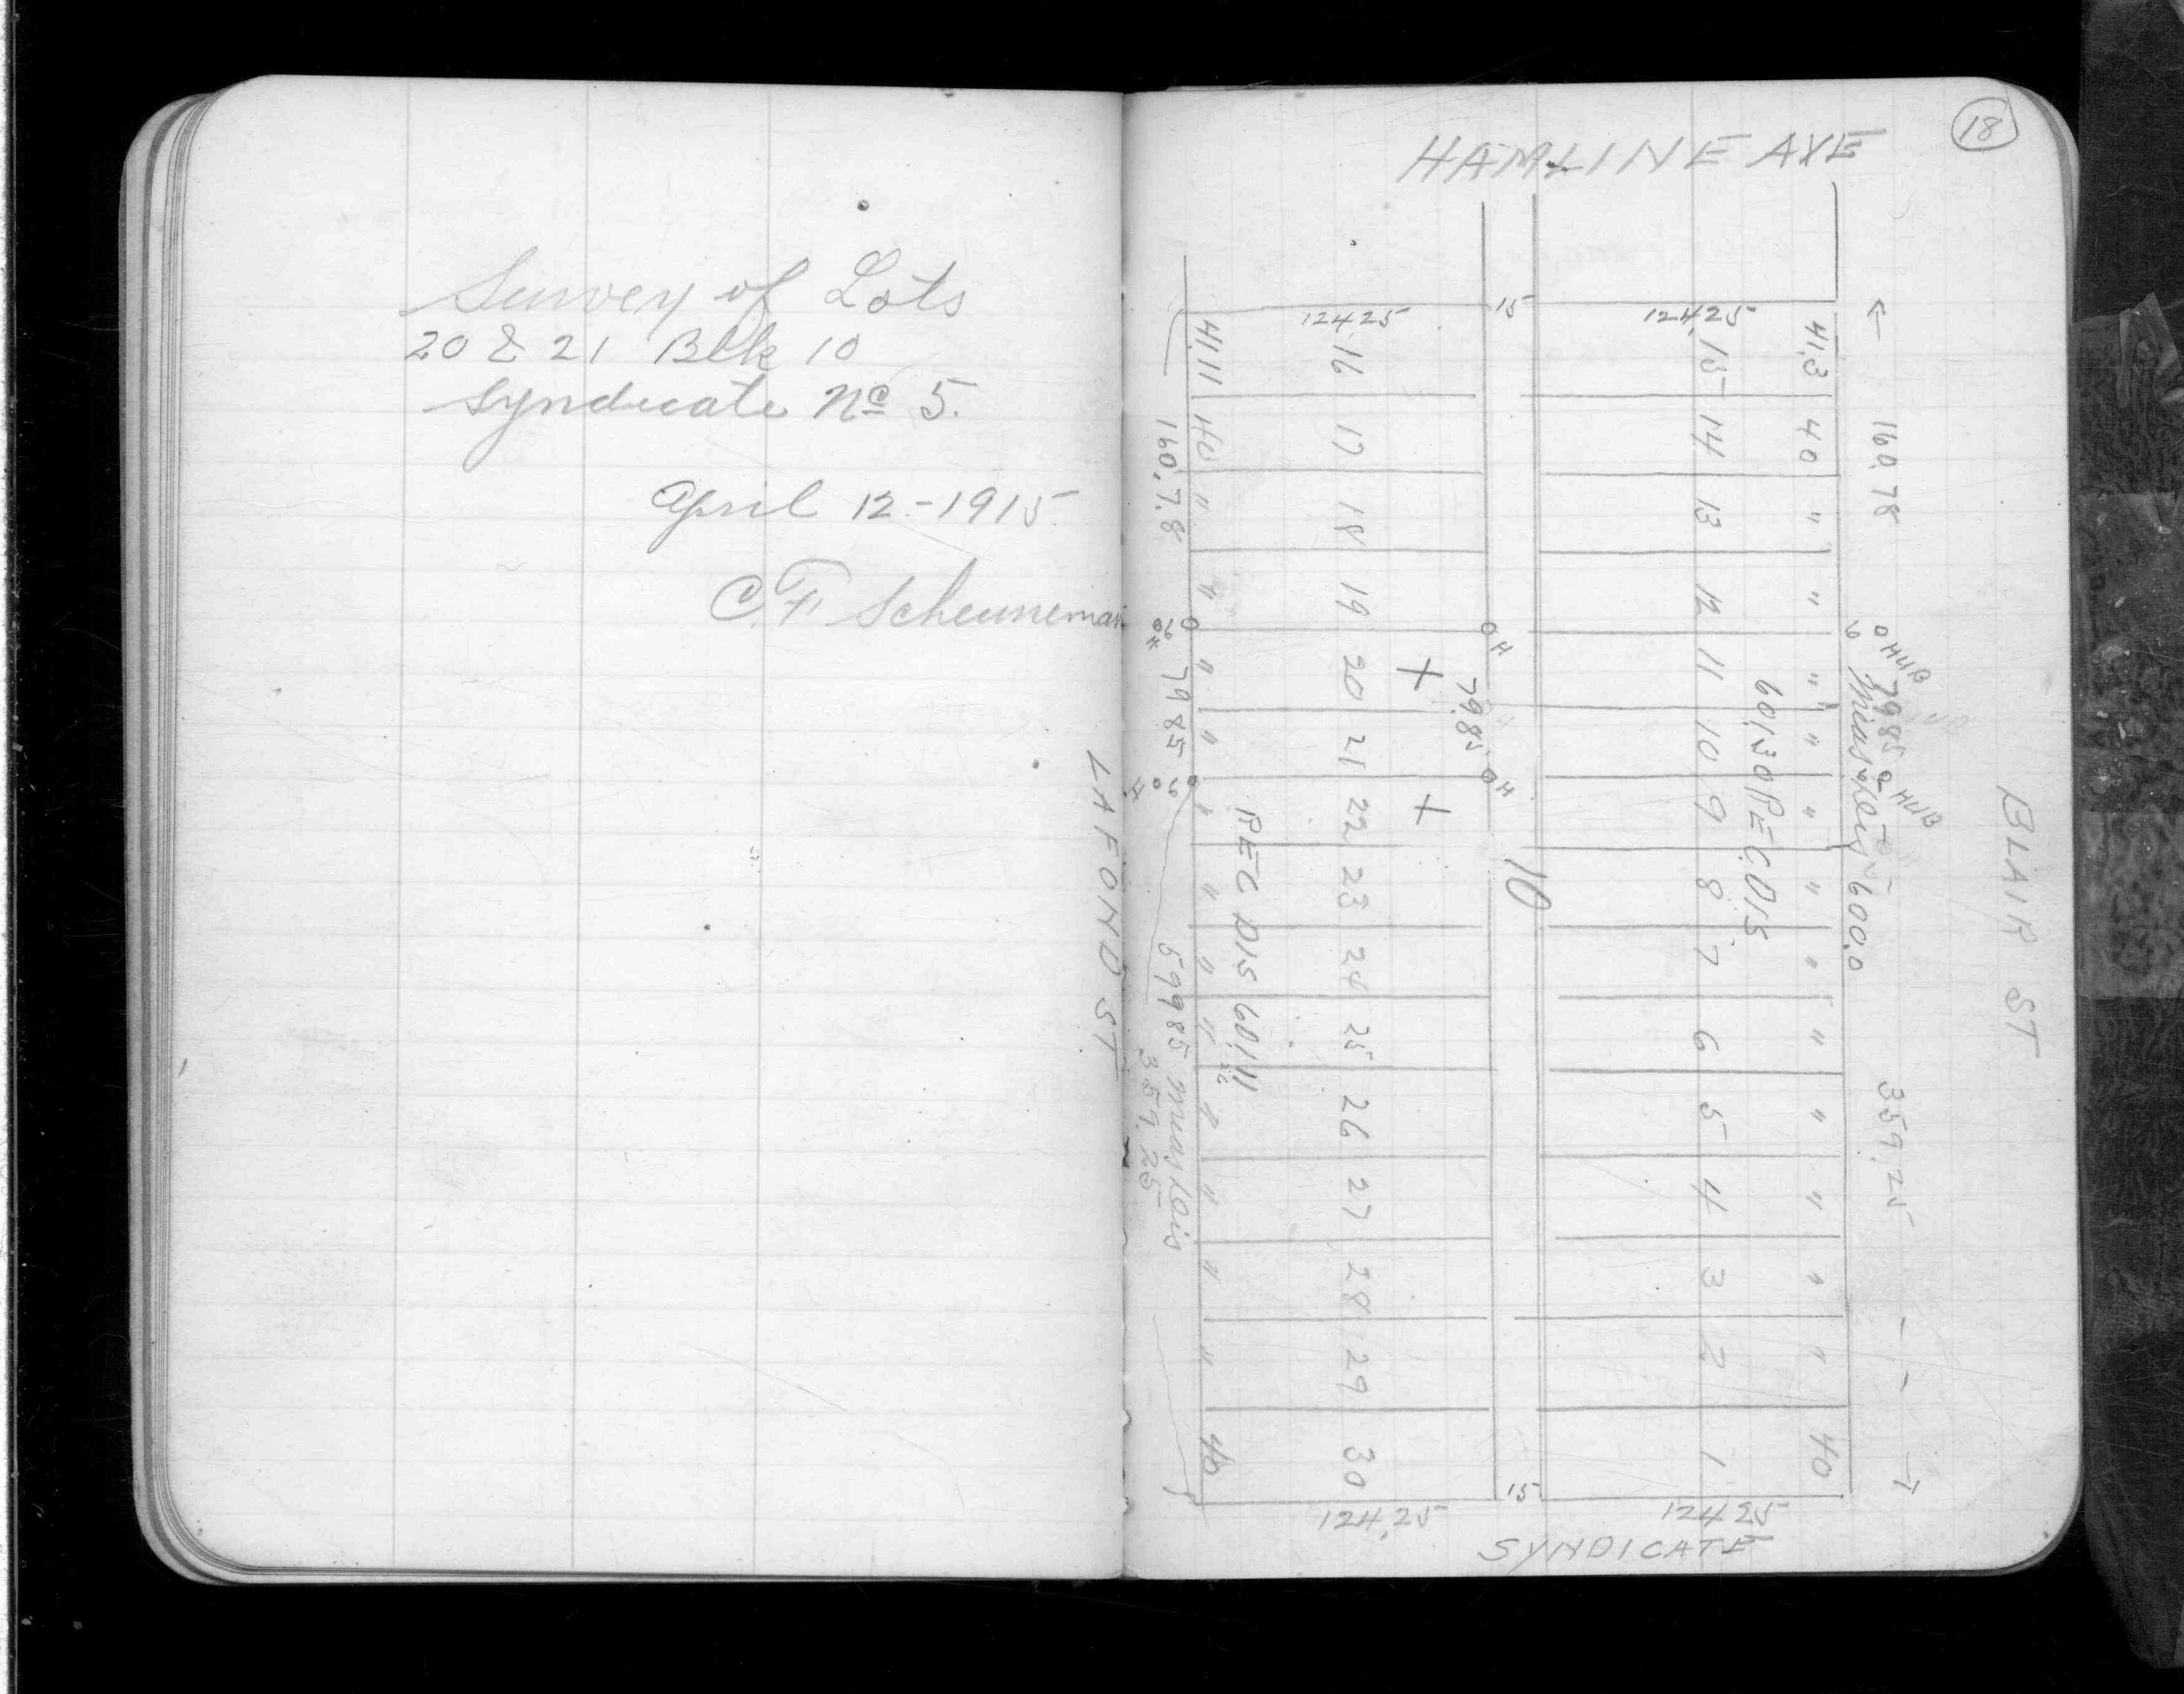 Survey of Lots
20 & 21 Blk 10
Syndicate No 5.
April 12 - 1915
C. F. Scheuneman
18
HAMLINE AVE
15
124.25
124.25
41.11 16 15 41.3
40 17 14 40
" 18 13 "
" 19 12 "
" 20 11 "
" 21 10 "
" 22 9 "
" 23 8 "
" 24 7 "
" 25 6 "
" 26 5 "
" 27 4 "
" 28 3 "
" 29 2 "
40 30 1 40
160.78
79.85
599.85 meas
359.25
LAFOND ST
REC DIS 601.11
79.85
H
H
10
601.30 REC. DIS
160.78
HUB
79.85
HUB
meas 600.0
359.25
BLAIR ST
124.25
15
124.25
SYNDICATE